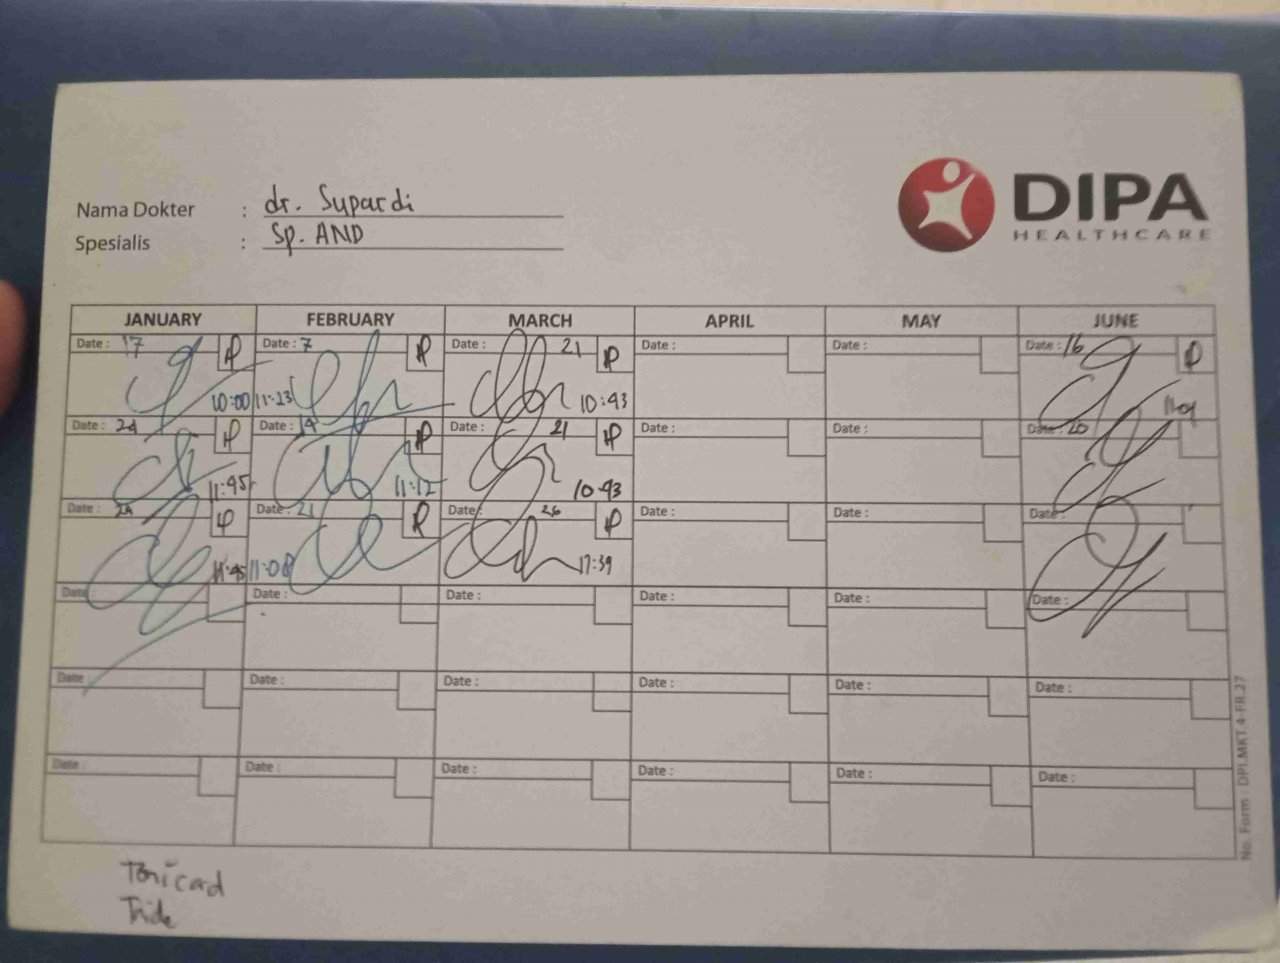 DIPA
HEALTHCARE
Nama Dokter : dr. Supardi
Spesialis : Sp. AND
JANUARY FEBRUARY MARCH APRIL MAY JUNE
Date : 17 Date : 7 Date : 21 Date : Date : Date : 16
10:00 11:23 10:43
Date : 24 Date : 14 Date : 21 Date : Date : Date : 20
11:45 11:12 10:43
Date : 24 Date : 21 Date : 26 Date : Date : Date :
11:45 11:08 17:39
Date : Date : Date : Date : Date : Date :
Date : Date : Date : Date : Date : Date :
Date : Date : Date : Date : Date : Date :
No. Form : DPI.MKT.4-FR.27